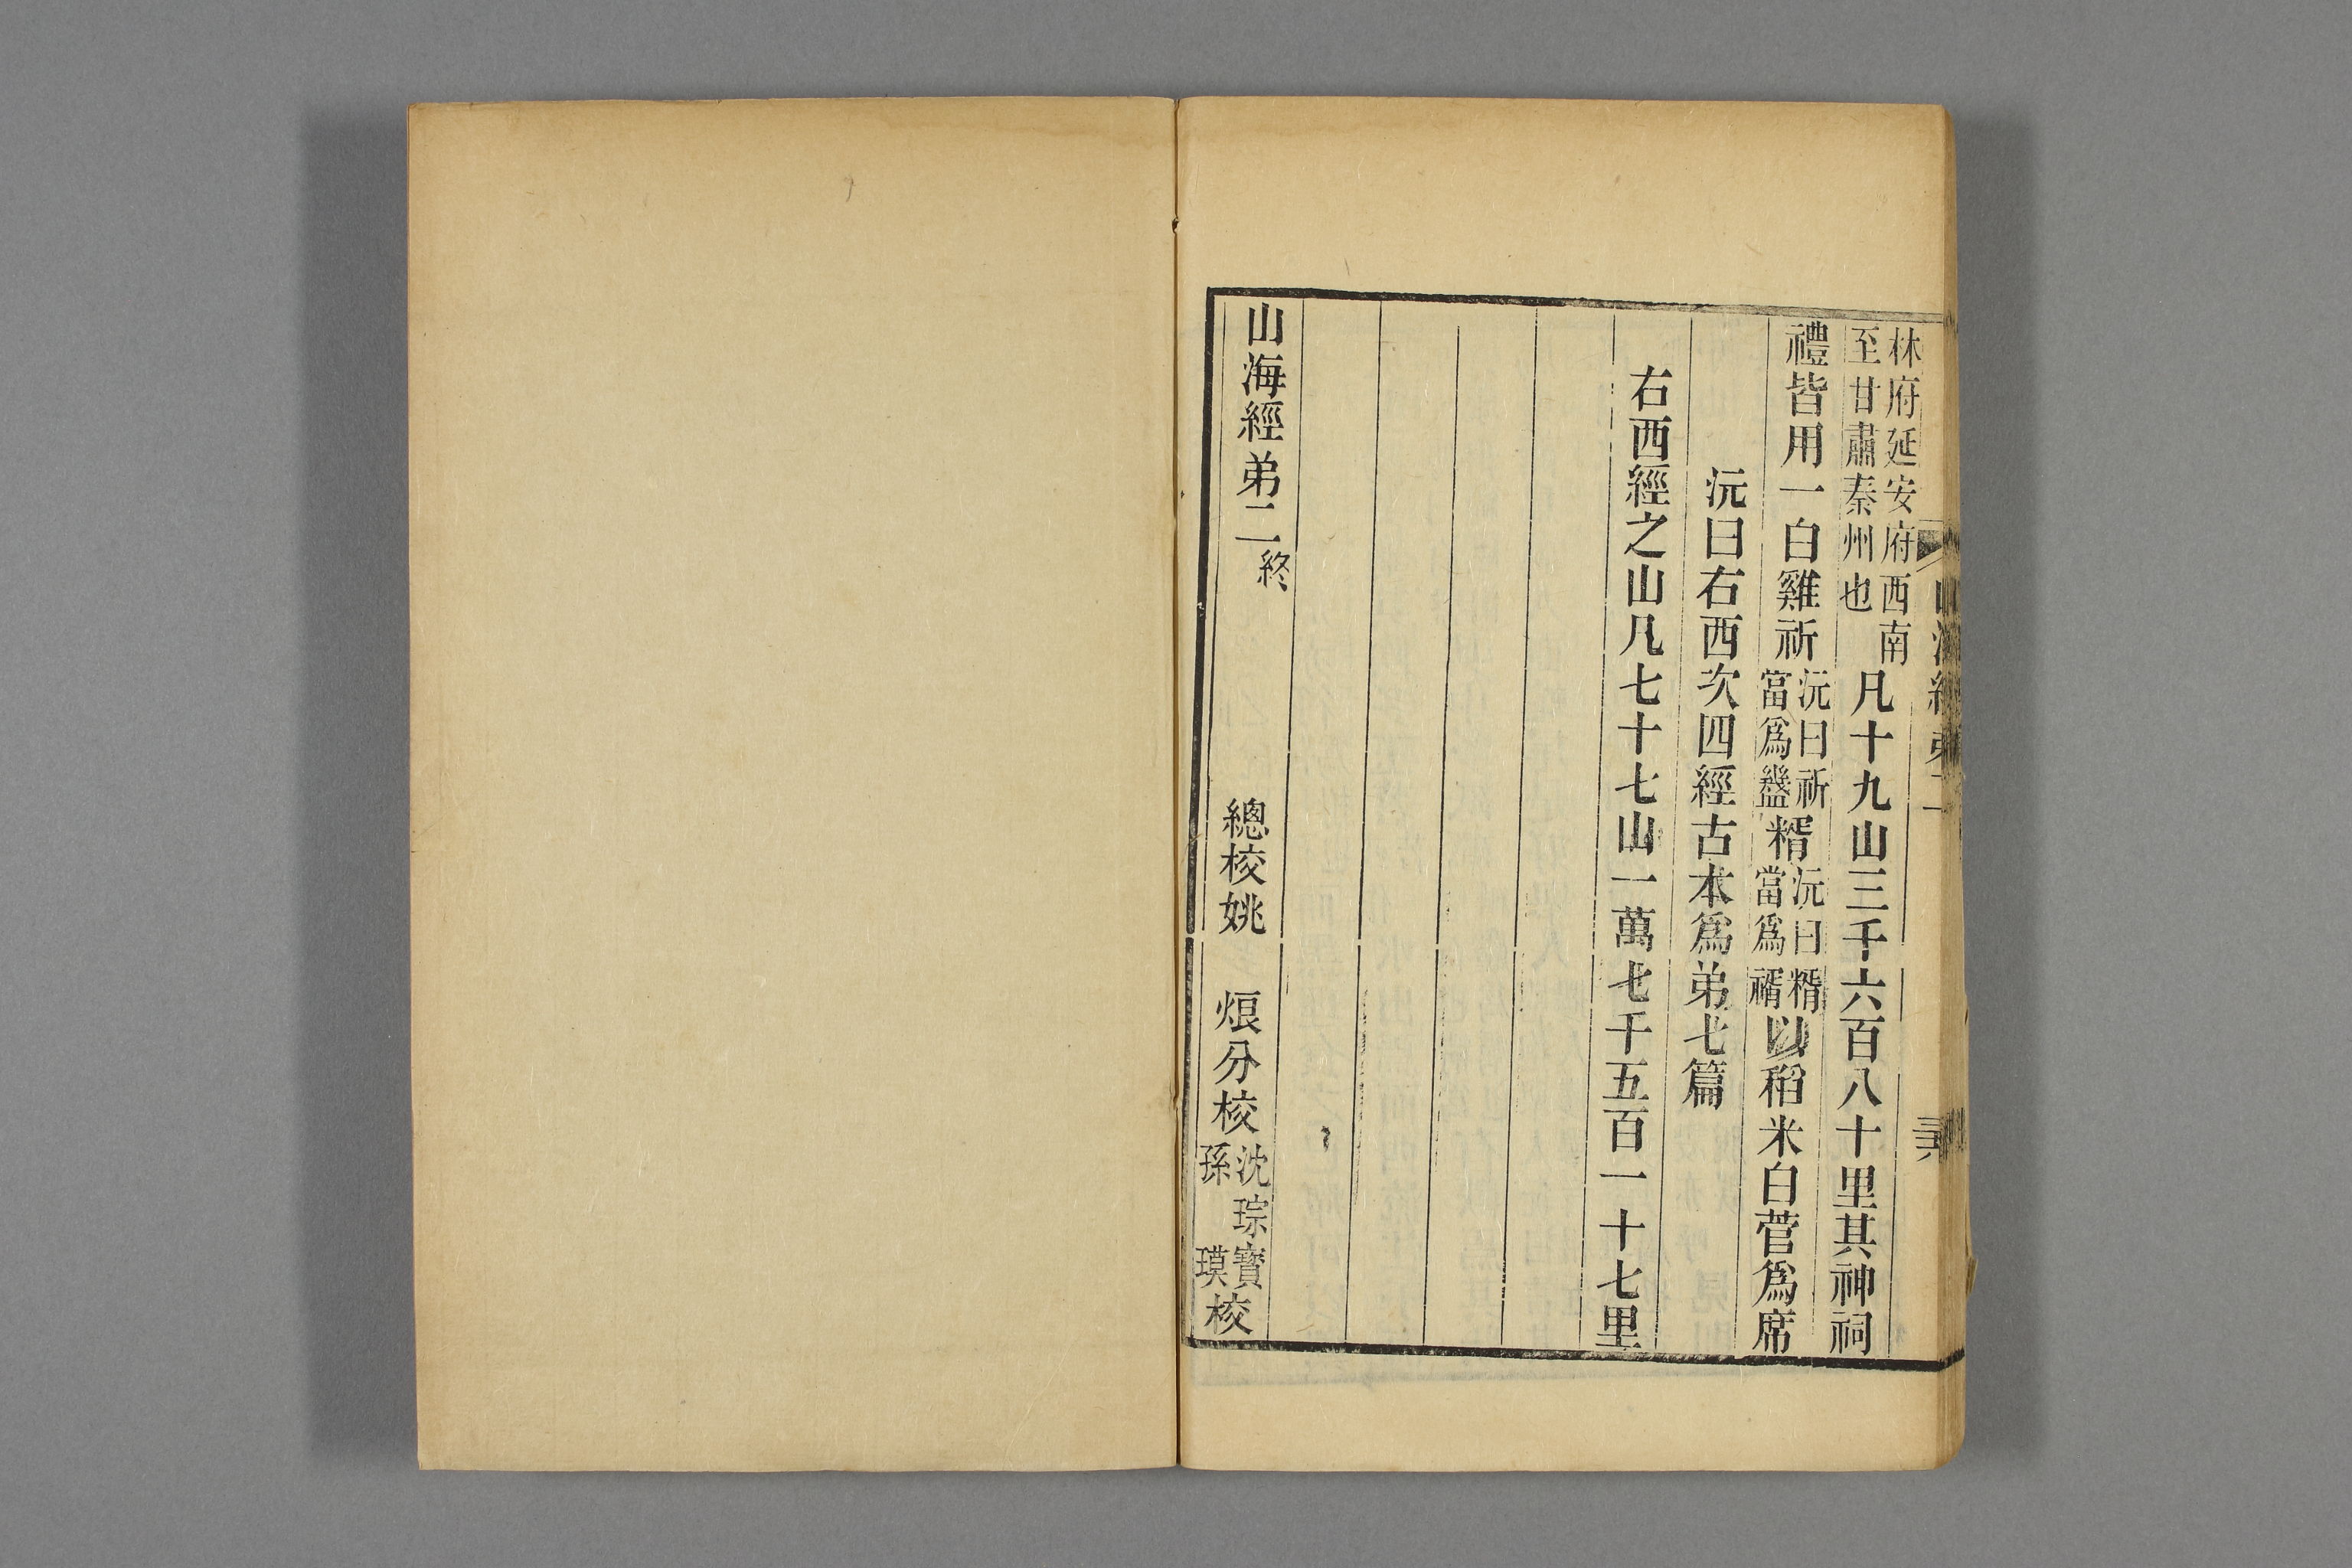 林府延安府西南至甘肅秦州也凡十九山三千六百八十里其神祠
禮皆用一白雞祈沅曰祈當爲𥜹糈沅曰糈當爲稰以稻米白菅爲席
沅曰右西次四經古本爲弟七篇
右西經之山凡七十七山一萬七千五百一十七里
山海經弟二終 總校姚 烺分校沈琮寶孫 瑛校